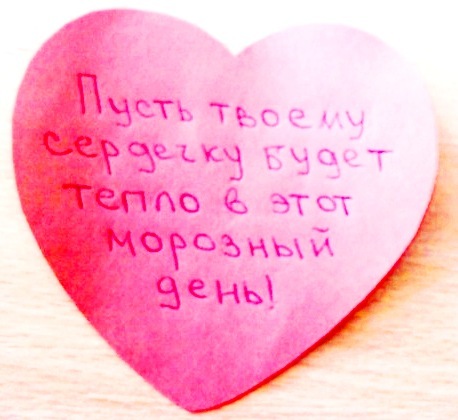 Пусть твоему
сердечку будет
тепло в этот
морозный
день!